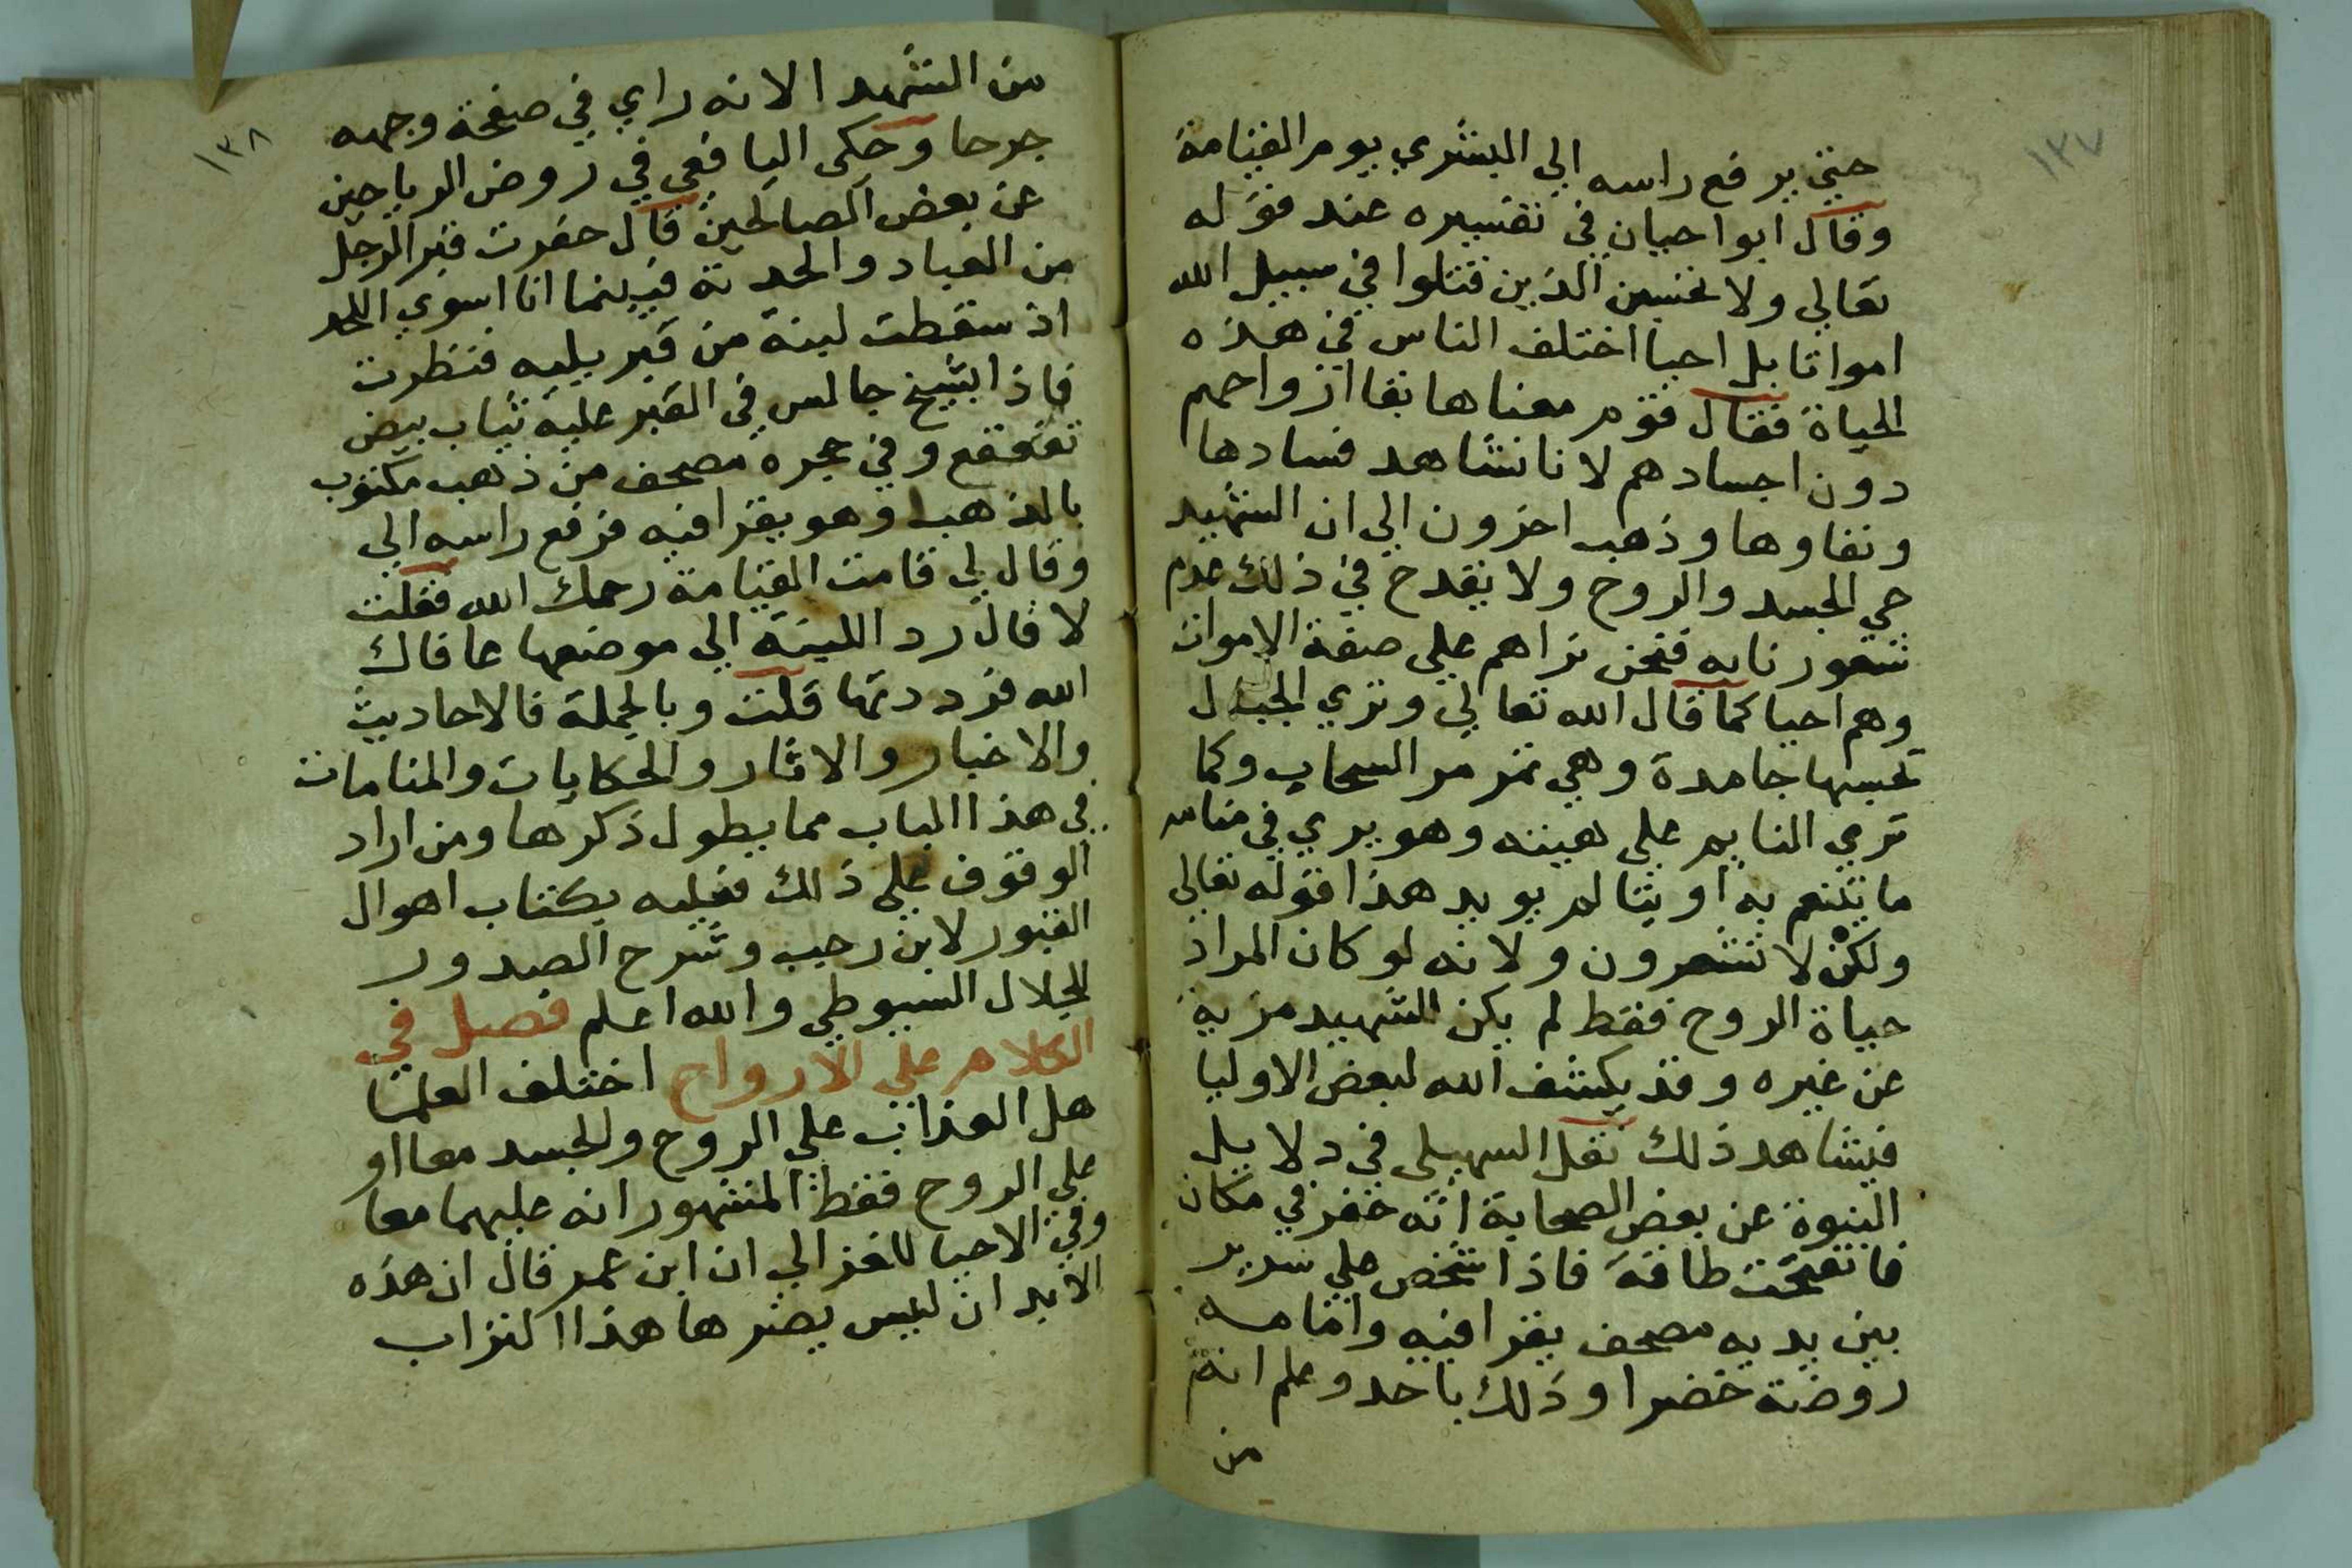 ١٣٧
حتي يرفع راسه الي البشري يوم القيامة
وقال ابوا حيان في تفسيره عند قوله
تعالي ولا تحسبن الذين قتلوا في سبيل الله
امواتا بل احيا اختلف الناس في هذه
الحياة فقال قوم معناها بقا ارواحهم
دون اجسادهم لانا نشاهد فسادها
وفناوها وذهب اخرون الي ان الشهيد
حي الجسد والروح ولا يقدح في ذلك عدم
شعورنا به فنحن نراهم علي صفة الاموات
وهم احيا كما قال الله تعالي وتري الجبال
تحسبها جامدة وهي تمر مر السحاب وكما
تري النايم علي هيئته وهو يري في منامه
ما يتنعم به او يتالم يويد هذا قوله تعالي
ولكن لا تشعرون ولانه لو كان المراد
حياة الروح فقط لم يكن للشهيد مزية
عن غيره وقد يكشف الله لبعض الاوليا
فيشاهد ذلك نقل السهيلي في دلايل
النبوة عن بعض الصحابة انه حفر في مكان
فانفتحت طاقة فاذا شخص علي سرير
بين يديه مصحف يقرا فيه وامامه
روضة خضرا وذلك باحد وعلم انه
من
١٣٨
من الشهد الانه راي في صفحة وجهه
جرحا وحكى اليافعي في روض الرياحين
عن بعض الصالحين قال حفرت قبر الرجل
من العباد والحدته فبينما انا اسوي اللحد
اذ سقطت لبنة من قبر يليه فنظرت
فاذا بشيخ جالس في القبر عليه ثياب بيض
تقعقع وفي حجره مصحف من ذهب مكتوب
بالذهب وهو يقرا فيه فرفع راسه الي
وقال لي قامت القيامة رحمك الله فقلت
لا قال رد اللبنة الي موضعها عافاك
الله فرددتها قلت وبالجملة فالاحاديث
والاخبار والاثار والحكايات والمنامات
في هذا الباب مما يطول ذكرها ومن اراد
الوقوف علي ذلك فعليه بكتاب اهوال
القبور لابن رجب وشرح الصدور
للجلال السيوطي والله اعلم فصل في
الكلام علي الارواح اختلف العلما
هل العذاب علي الروح والجسد معا او
علي الروح فقط المشهور انه عليهما معا
وفي الاحيا للغزالي ان ابن عمر قال ان هذه
الابدان ليس يضرها هذا التراب